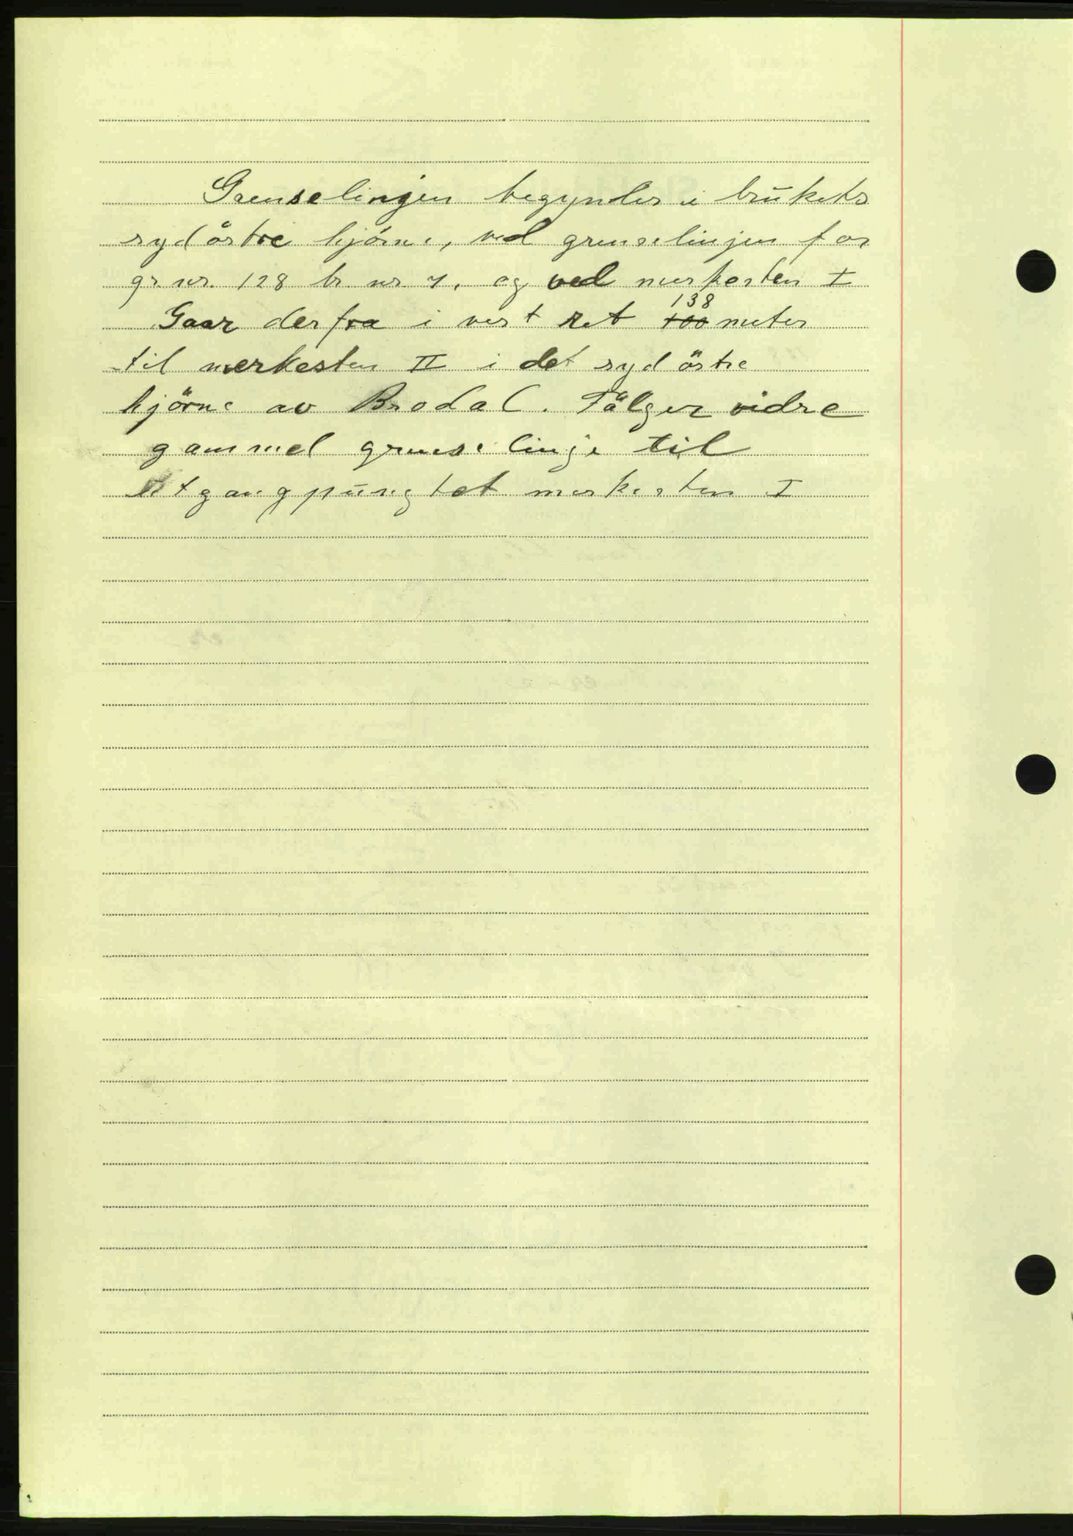 Grenselinjen begynder i brukets
sydöstre hjörne, ved grenselinjen for
gr nr. 128 br nr 7. og ved merkesten I
Gaar derfra i vest ret 100 138 meter
til merkesten II i det sydöstre
hjörne av Brodal. Fölger vidre
gammel grenselinje til
utgangpungtet merkesten I